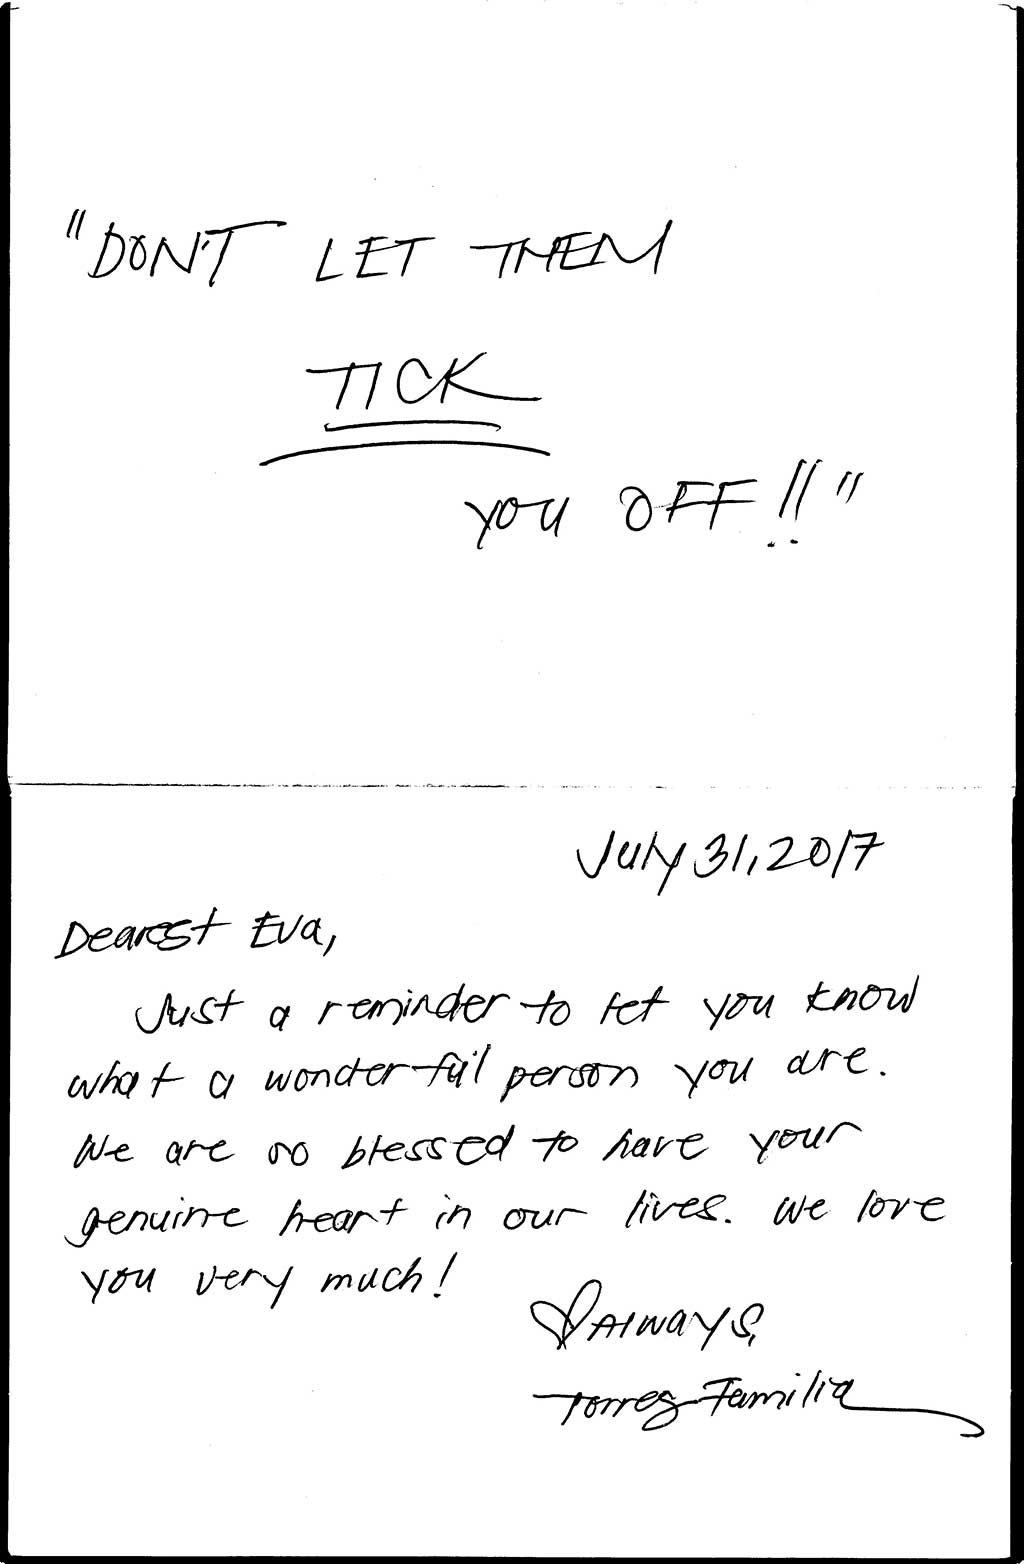 "DON'T LET THEM
TICK
YOU OFF!!"
July 31, 2017
Dearest Eva,
Just a reminder to let you know
what a wonderful person you are.
We are so blessed to have your
genuine heart in our lives. We love
you very much!
♡Always,
Torres Familia